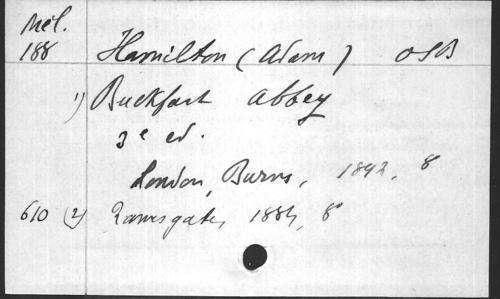 Mél.
188 Hamilton (Adam) OSB
1) Buckfast Abbey
3e ed.
London, Burns, 1892, 8°
610 (2) Ramsgate, 1884, 8°